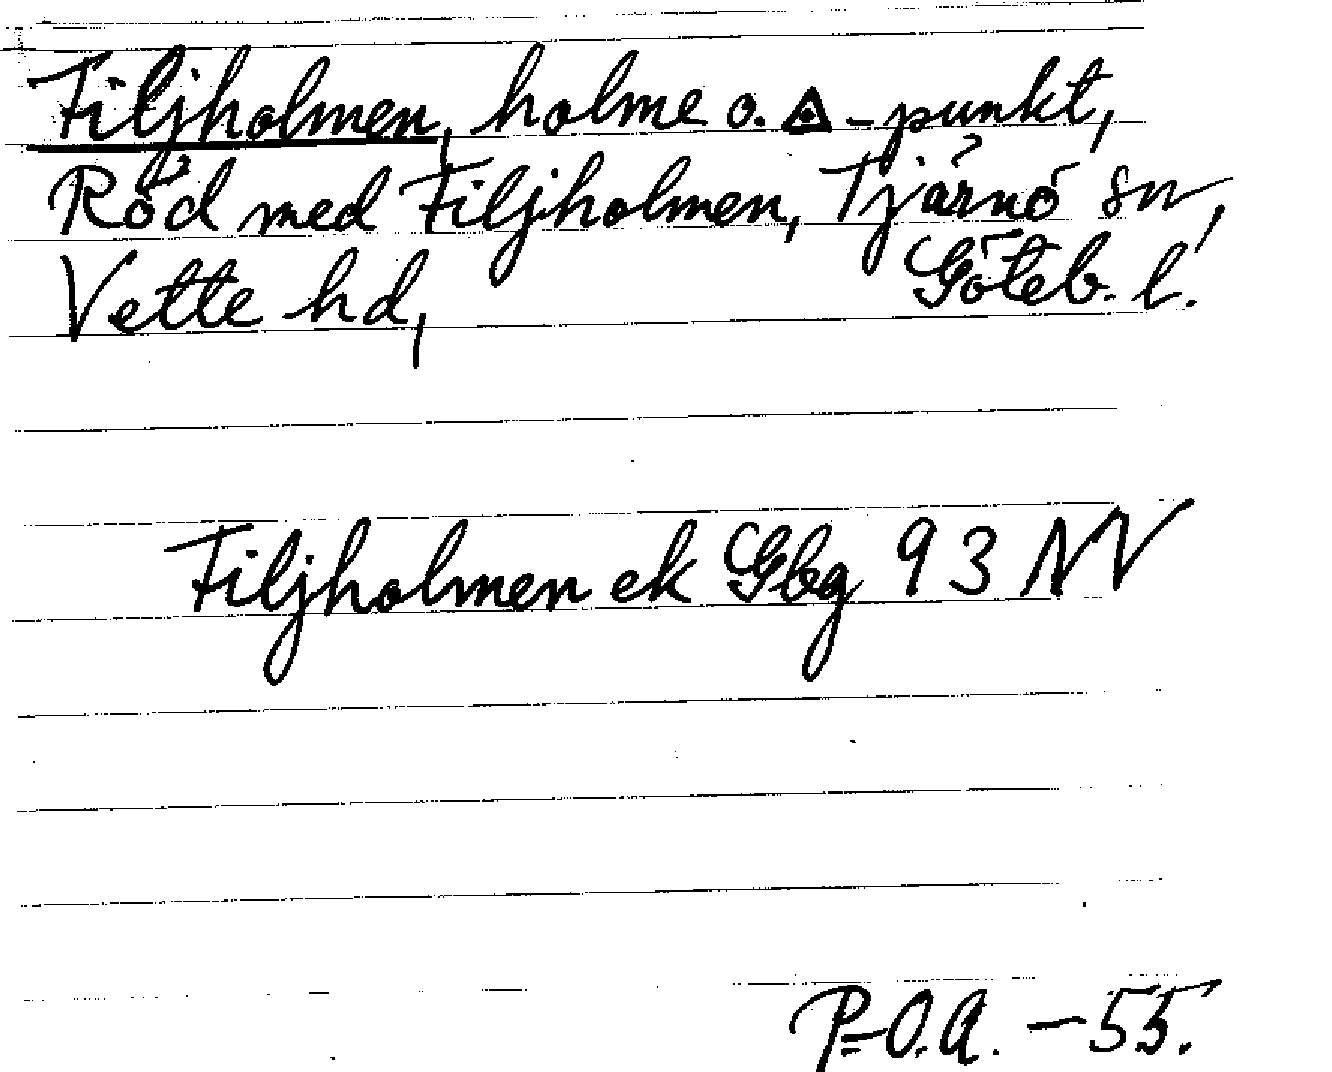 Filjholmen, holme o. △-punkt,
Röd med Filjholmen, Tjärnö sn,
Vette hd, Göteb. l.
Filjholmen ek Gbg 93 NV
P-O.A. -55.